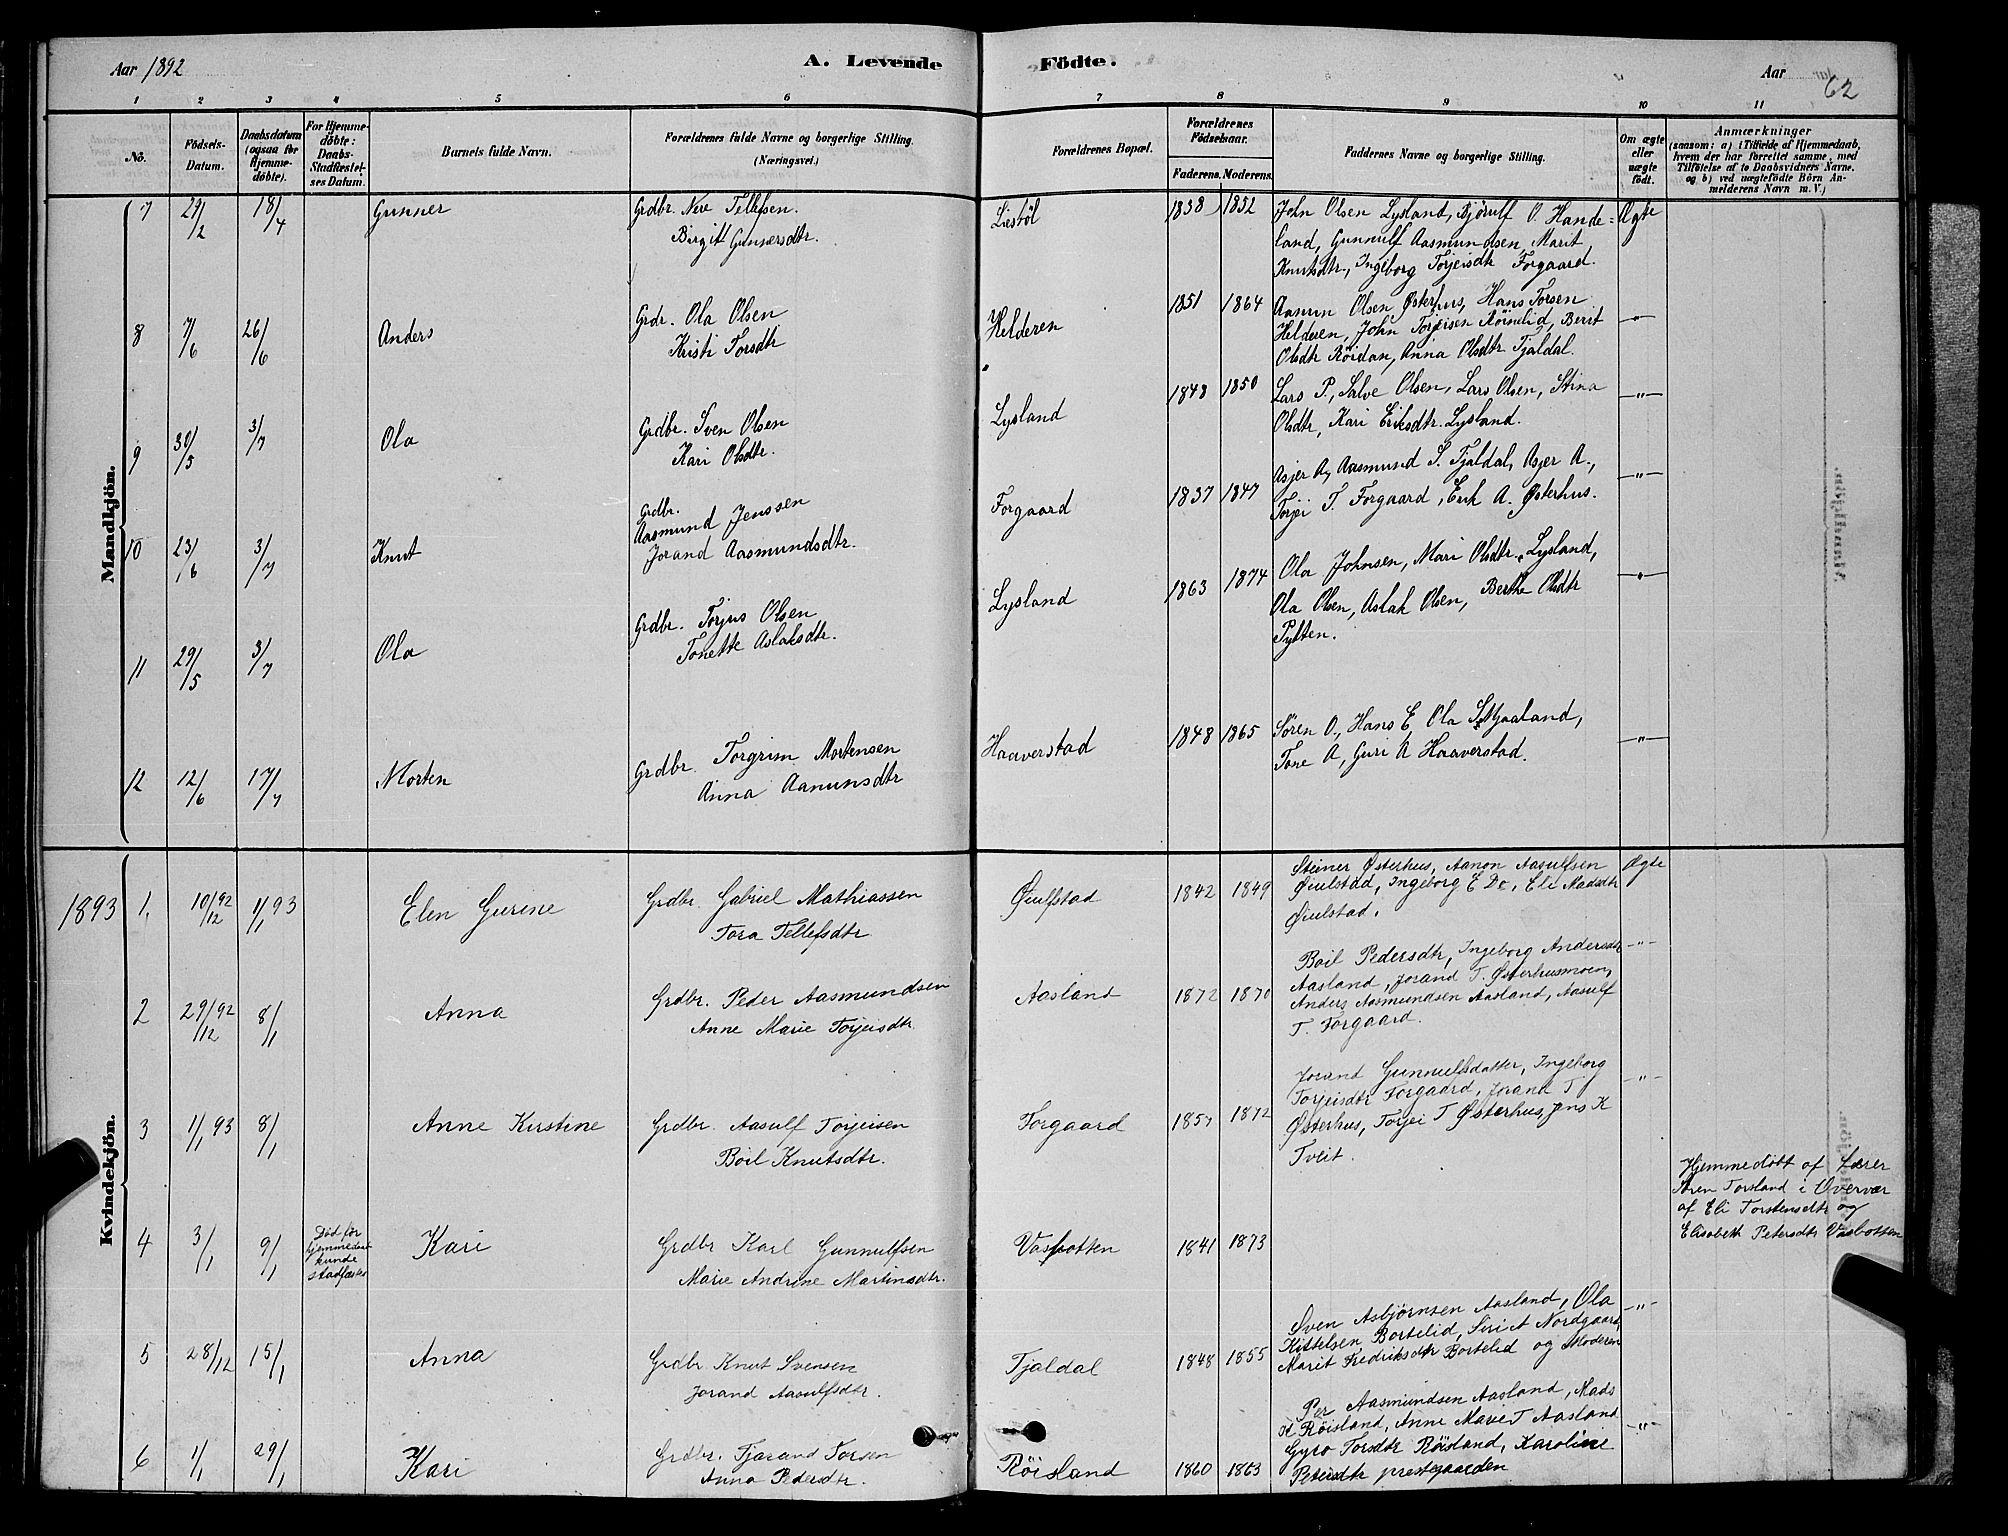 Aar 1892
A. Levende
Födte.
Aar
62
1 2 3 4 5 6 7 8 9 10 11
No.
Födsels-
Datum.
Daabsdatum
(ogsaa for
Hjemme-
döbte).
For Hjemme-
döbte:
Daabs-
Stadfæstel-
ses Datum.
Barnets fulde Navn.
Forældrenes fulde Navne og borgerlige Stilling.
(Næringsvei.)
Forældrenes Bopæl.
Forældrenes
Födselsaar.
Faderens. Moderens.
Faddernes Navne og borgerlige Stilling.
Om ægte
eller
uægte
födt.
Anmærkninger
(saasom: a) i Tilfælde af Hjemmedaab,
hvem der har forrettet samme, med
Tilföielse af to Daabsvidners Navne.
og b) ved uægtefödte Börn An-
melderens Navn m. V.)
Mandkjön.
7 29/2 18/4 Gunner Grdbr. Tellefsen.
Birgit Gunnersdtr.
Liestöl 1838 1852 John Olsen Lysland, Bjórulf O. Hande-
land, Gunnulf Aasmundsen, Marit
Knutsdtr., Ingeborg Torjeisdtr Forgaard.
Ægte
8 7/6 26/6 Anders Grdr. Ola Olsen
Kristi Torsdtr
Helderen 1851 1864 Aanun Olsen Østerhus, Hans Torsen
Helderen, John Torjeisen Röinelid, Berit
Olsdtr Röidan, Anna Olsdtr Tjaldal.
-"-
9 30/5 3/7 Ola Grdbr. Sven Olsen
Kari Olsdtr.
Lysland 1848 1850 Lars P., Salve Olsen, Lars Olsen, Stina
Olsdtr, Kari Eriksdtr. Lysland.
-"-
10 23/6 3/7 Knut Grdbr.
Aasmund Jenssen
Jorand Aasmundsdtr.
Forgaard 1837 1847 Asjer A, Aasmund S. Tjaldal, Asjer A.,
Torjei T. Forgaard, Erik A. Østerhus.
-"-
11 29/5 3/7 Ola Grdbr. Torjus Olsen
Tonette Aslaksdtr.
Lysland 1863 1874 Ola Johnsen, Mari Olsdtr. Lysland,
Ola Olsen, Aslak Olsen, Berthe Olsdtr
Pytten.
-"-
12 12/6 17/7 Morten Grdbr. Torgrim Mortensen
Anna Aanunsdtr
Haaverstad 1848 1865 Sören O., Hans E, Ola S. Mjaaland,
Tone A, Guri A Haaverstad.
-"-
1893
Kvindekjön.
1, 10/12 92 1/1 93 Elen Gurine Grdbr. Gabriel Mathiassen
Tora Tellefsdtr
Øiulfstad 1842 1849 Steiner Østerhus, Aanon Aasulfsen
Øiulstad, Ingeborg E Do, Eli Aadsdtr
Øiulstad.
Ægte
2 29/12 92 8/1 Anna Grdbr. Peder Aasmundsen
Anne Marie Torjeisdtr
Aasland 1872 1870 Boil Pedersdtr, Ingeborg Andersdtr
Aasland, Jorand T. Østerhusmoen,
Anders Aasmundsen Aasland, Aasulf
T. Forgaard.
-"-
3 1/1 93 8/1 Anne Kirstine Grdbr. Aasulf Torjeisen
Boil Knutsdtr.
Forgaard 1857 1872 Jorand Gunnulfsdatter, Ingeborg
Torjeisdtr Forgaard, Jorand T
Østerhus, Torjei T Østerhus, Jens K
Tveit.
-"-
4 3/1 9/1 Död för
hjemmedaab
kunde
stadfæstes
Kari Grdbr Karl Gunnulfsen
Marie Andrine Martinsdtr.
Vasbotten 1841 1873
Hjemmedöbt af Lærer
Sören Torsland i Overvær
af Eli Torstensdtr og
Elisabeth Petersdtr Vasbotten
5 28/12 15/1 Anna Grdbr Knut Svensen
Jorand Aasulfsdtr.
Tjaldal 1848 1855 Sven Asbjörnsen Aasland, Ola
Kittelsen Bortelid, Siri A Nordgaard,
Marit Fredriksdtr Bortelid og Moderen
-"-
6 1/1 29/1 Kari Grdbr. Tjarand Torsen
Anna Pedersdtr.
Röisland 1860 1863 Per Aasmundsen Aasland, Mads
K Röisland, Anne Marie T Aasland
Gyro Torsdtr Röisland, Karoline
Petersdtr prestegaarden
-"-